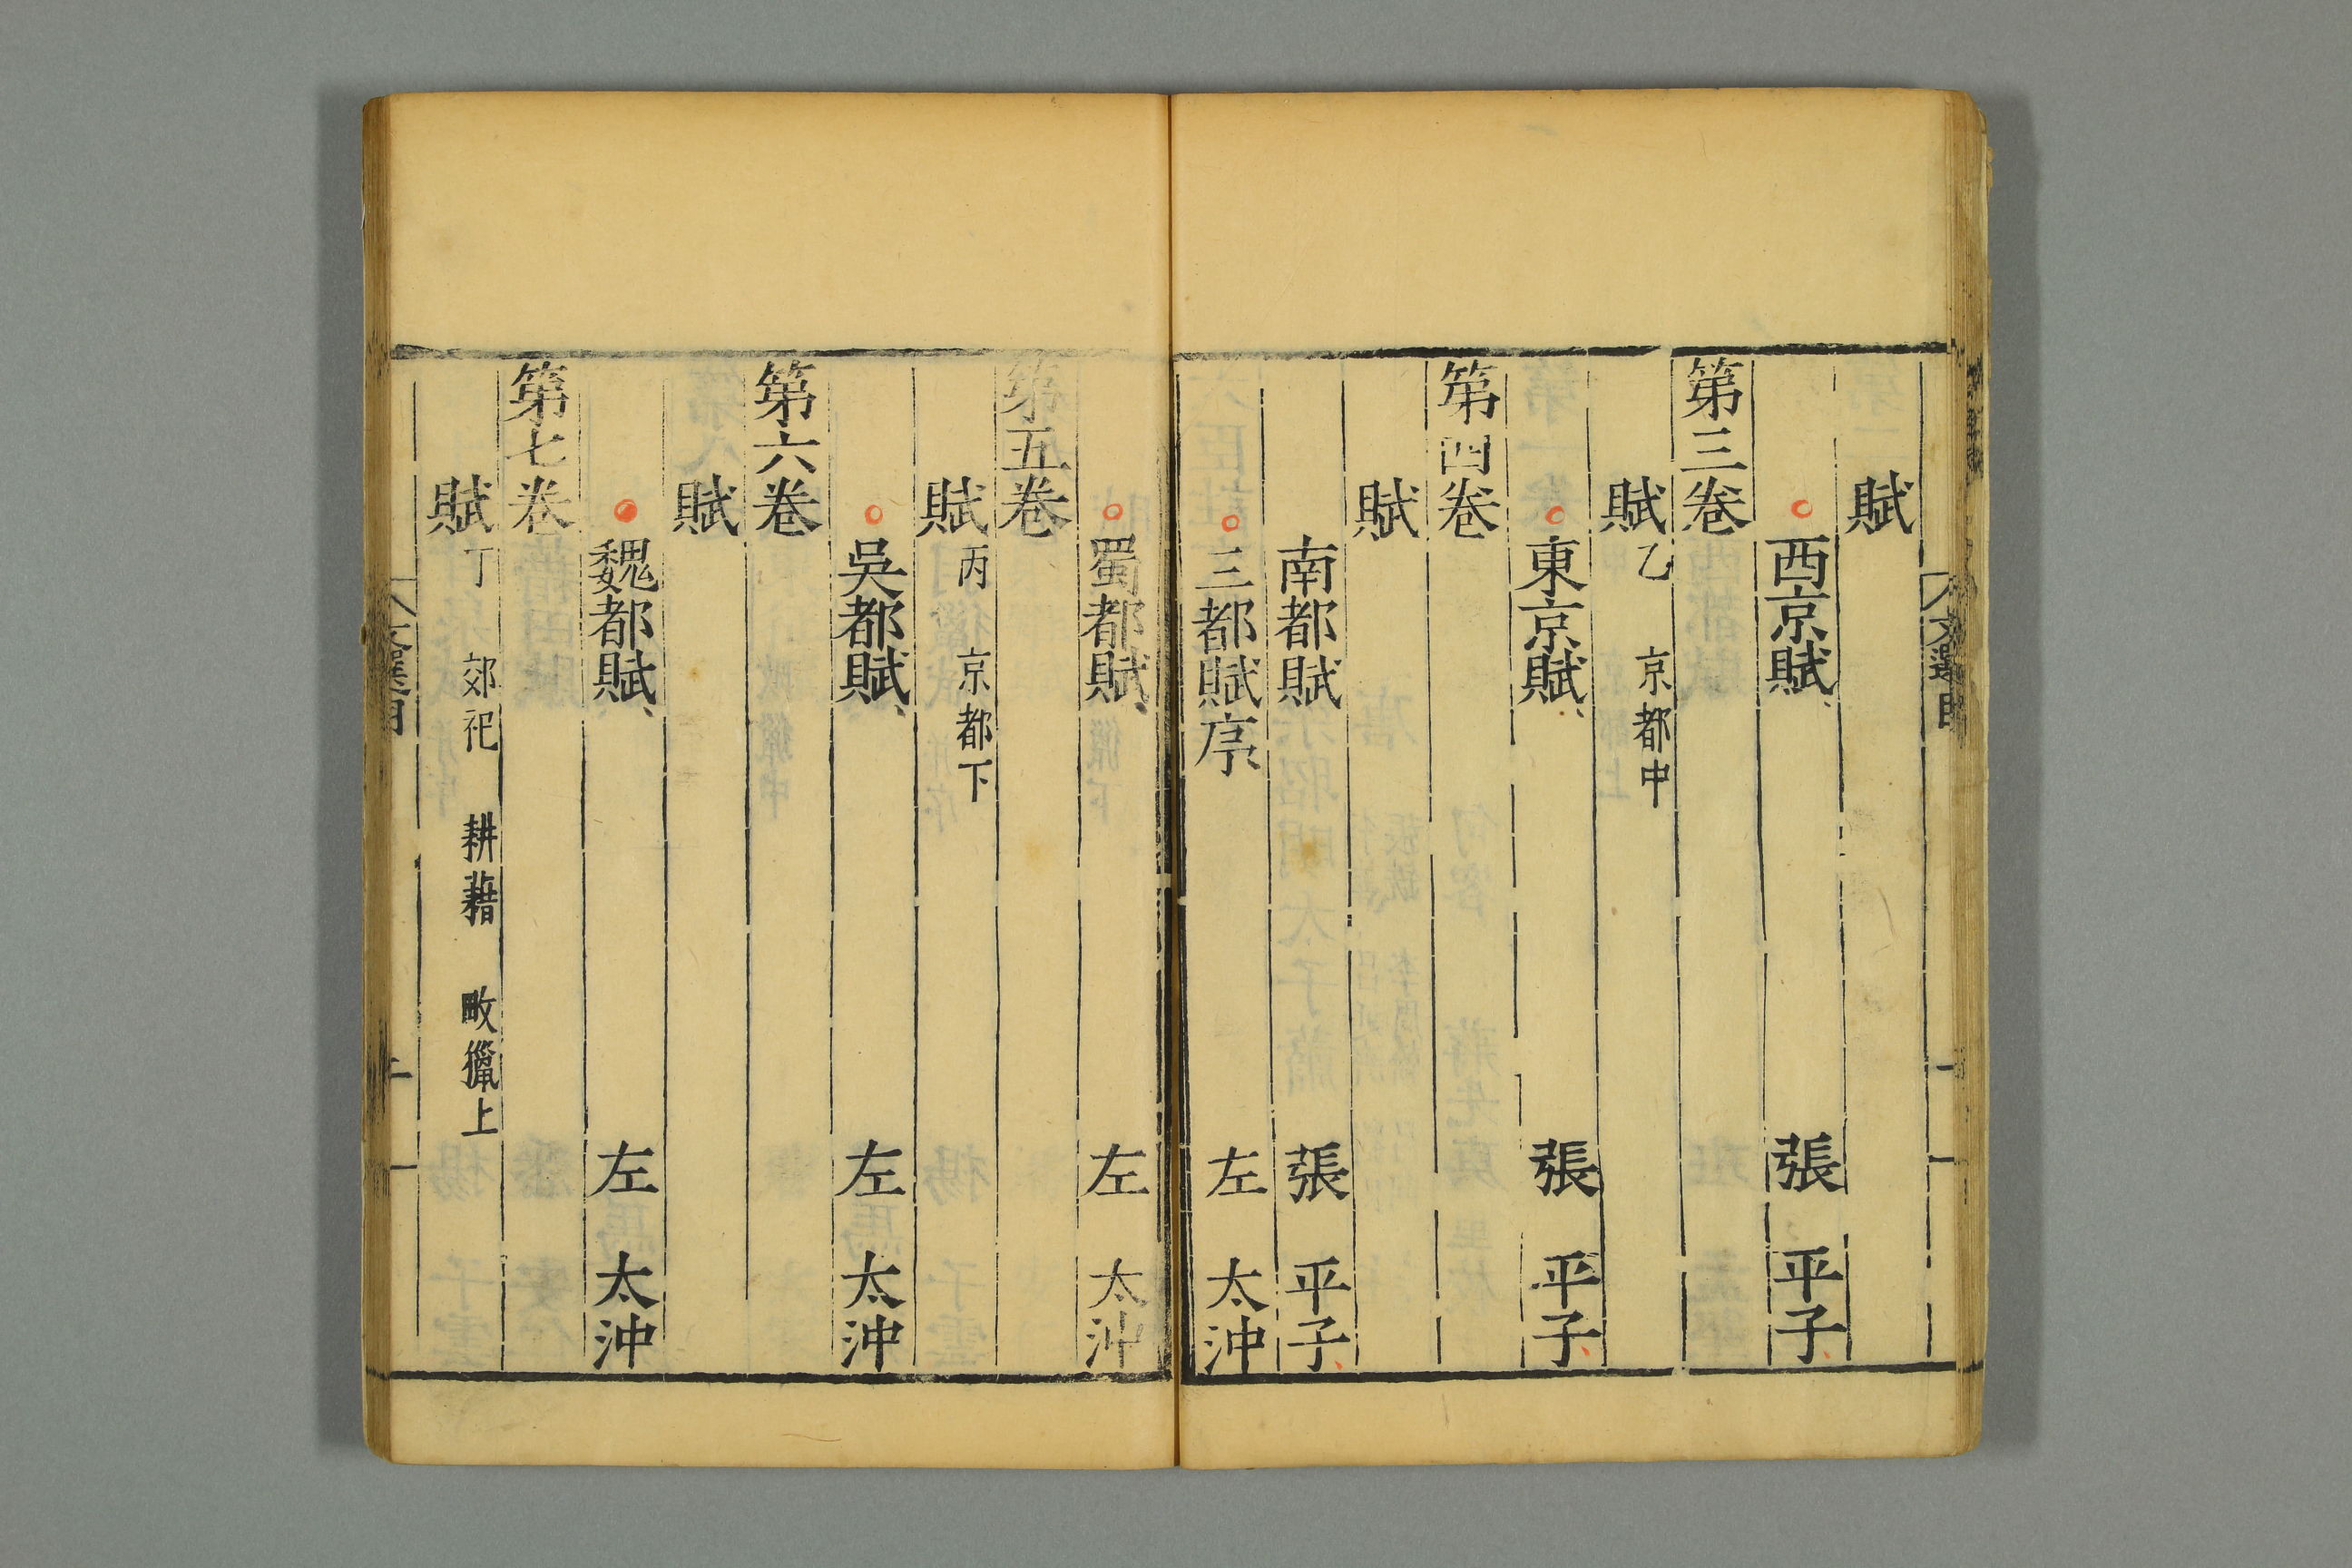 賦
西京賦 張平子
第三卷
賦 乙 京都中
東京賦 張平子
第四卷
賦
南都賦 張平子
三都賦序 左太沖
蜀都賦 左太沖
第五卷
賦 丙 京都下
吳都賦 左太沖
第六卷
賦
魏都賦 左太沖
第七卷
賦 丁 郊祀 耕藉 畋獵上
文選目